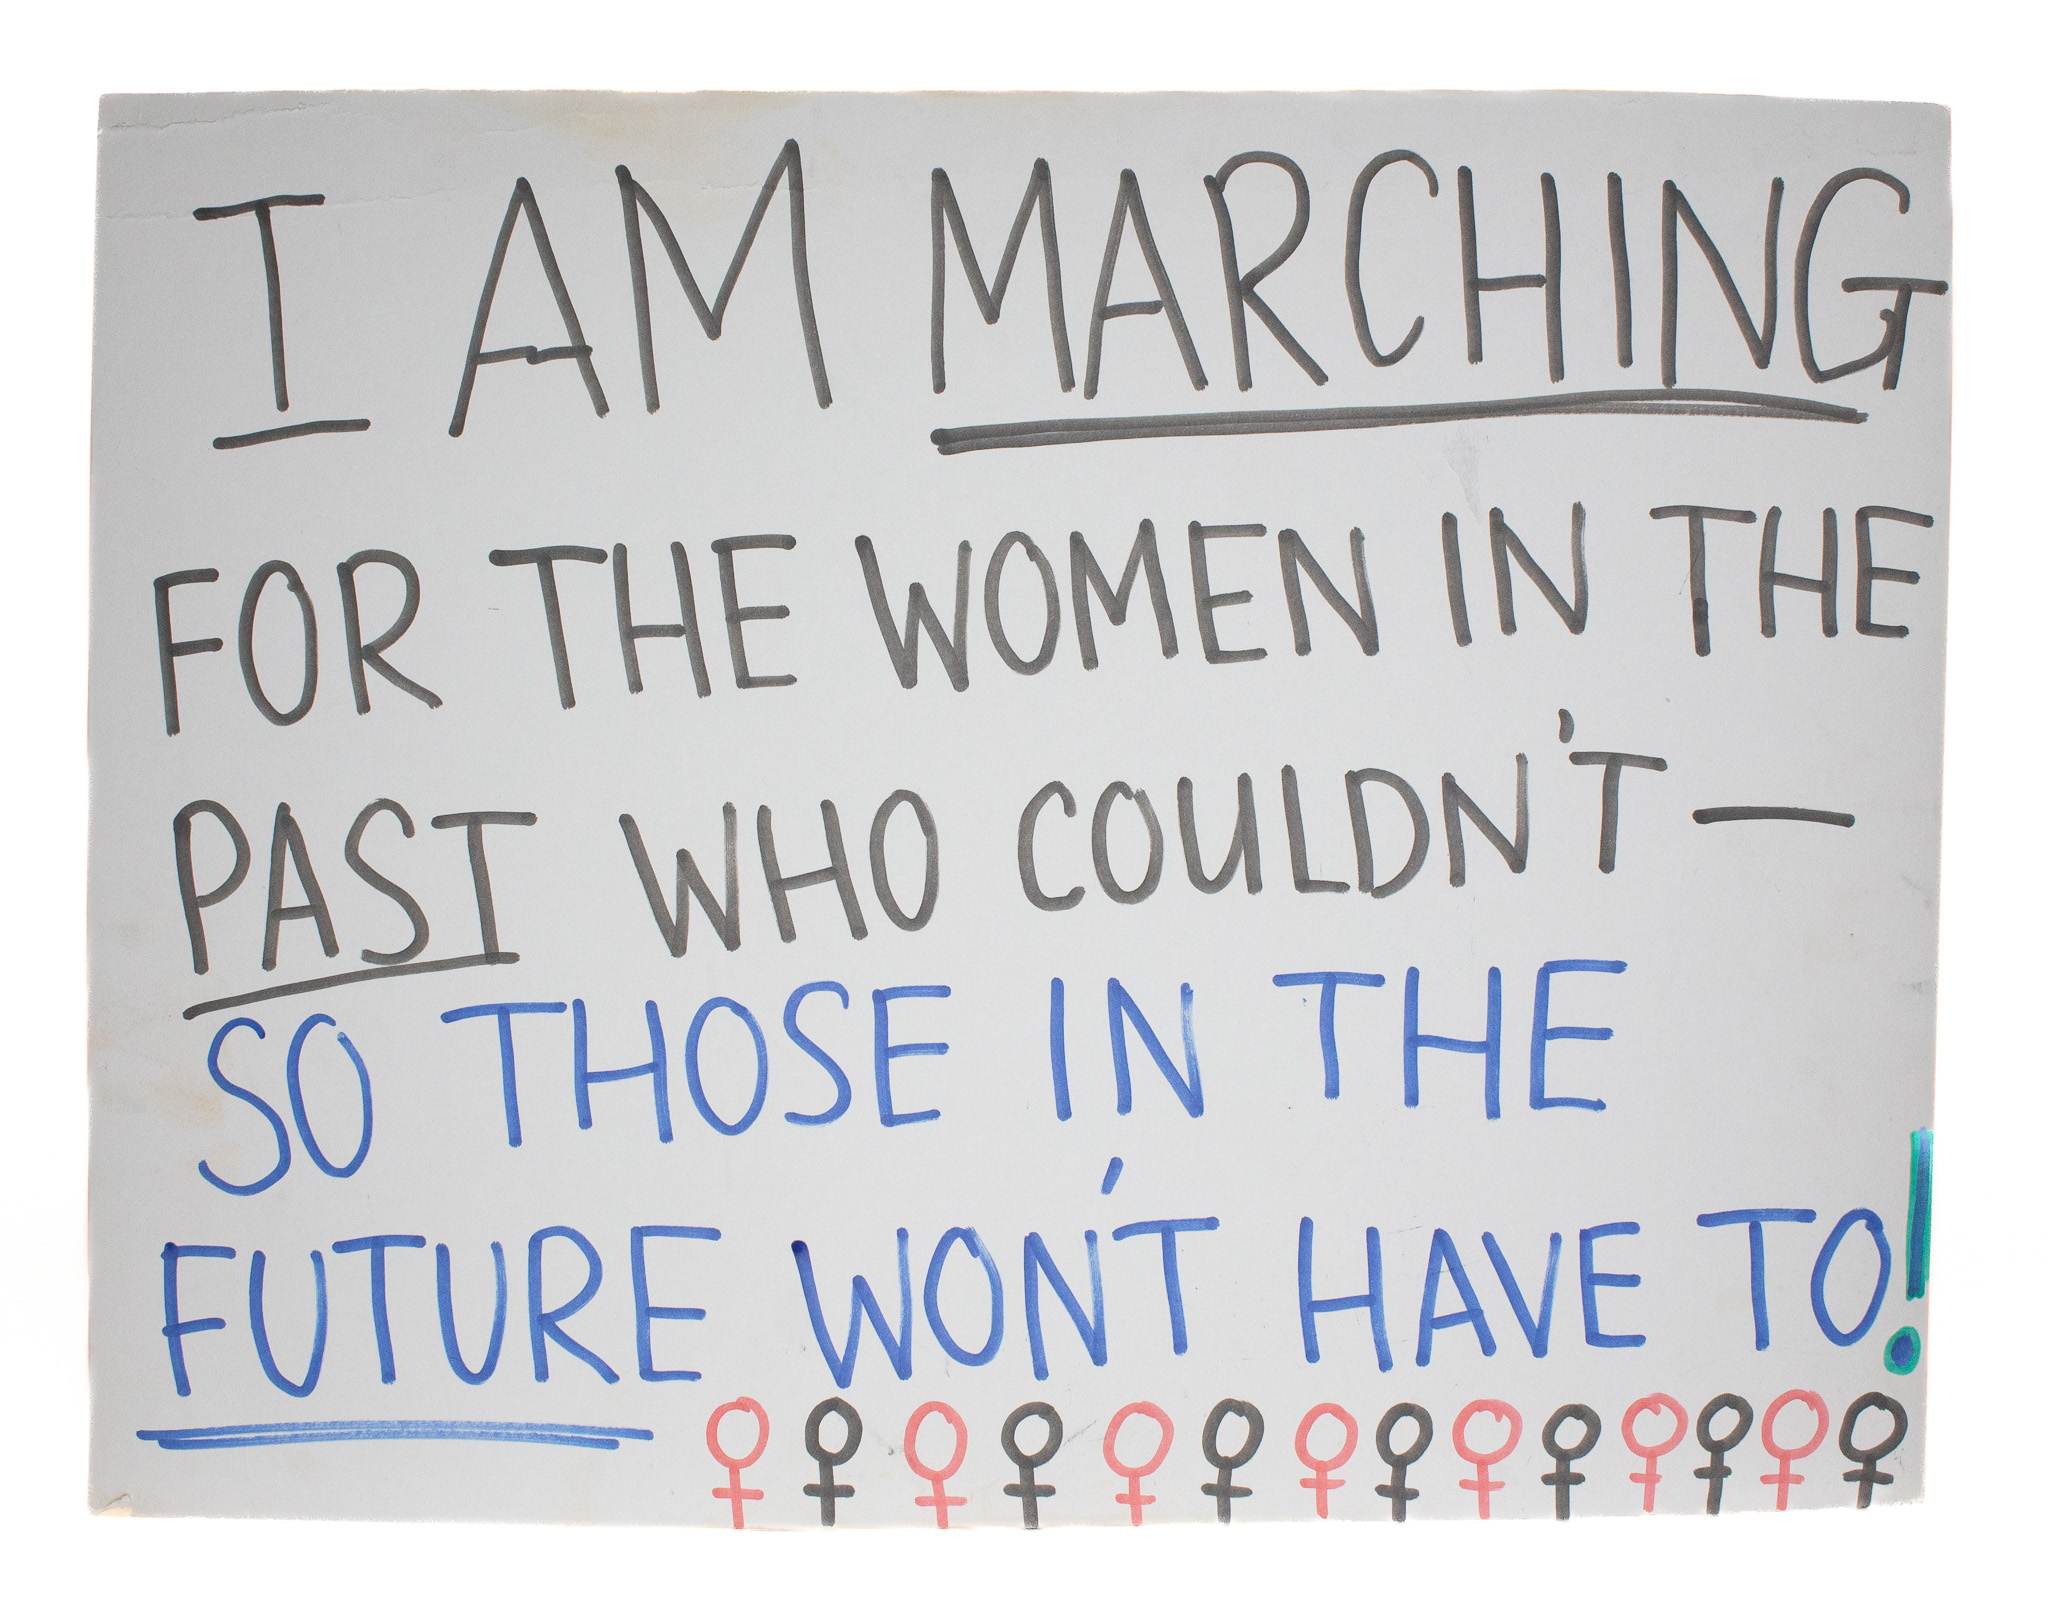 I AM MARCHING
FOR THE WOMEN IN THE
PAST WHO COULDN'T —
SO THOSE IN THE
FUTURE WON'T HAVE TO!
♀♀♀♀♀♀♀♀♀♀♀♀♀♀